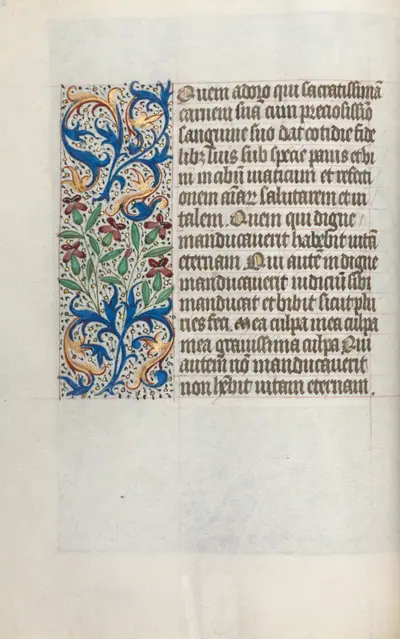 Quem adoro qui sacratissimā
carnem suā cum preciosissīo
sanguine suo dat cotidie fide
libꝫ suis sub specie panis et vi
ni in abūī viaticum et refecti
onem aīaꝝ salutarem et vi
talem. Quem qui digne
manducaverit habebit vitā
eternam Qui autē indigne
manducaverit iudiciū sibi
manducat et bibit sicut plu
ries feci. Mea culpa mea culpa
mea gravissima culpa Qui
autem nō manducaverit
non hēbit vitam eternam.